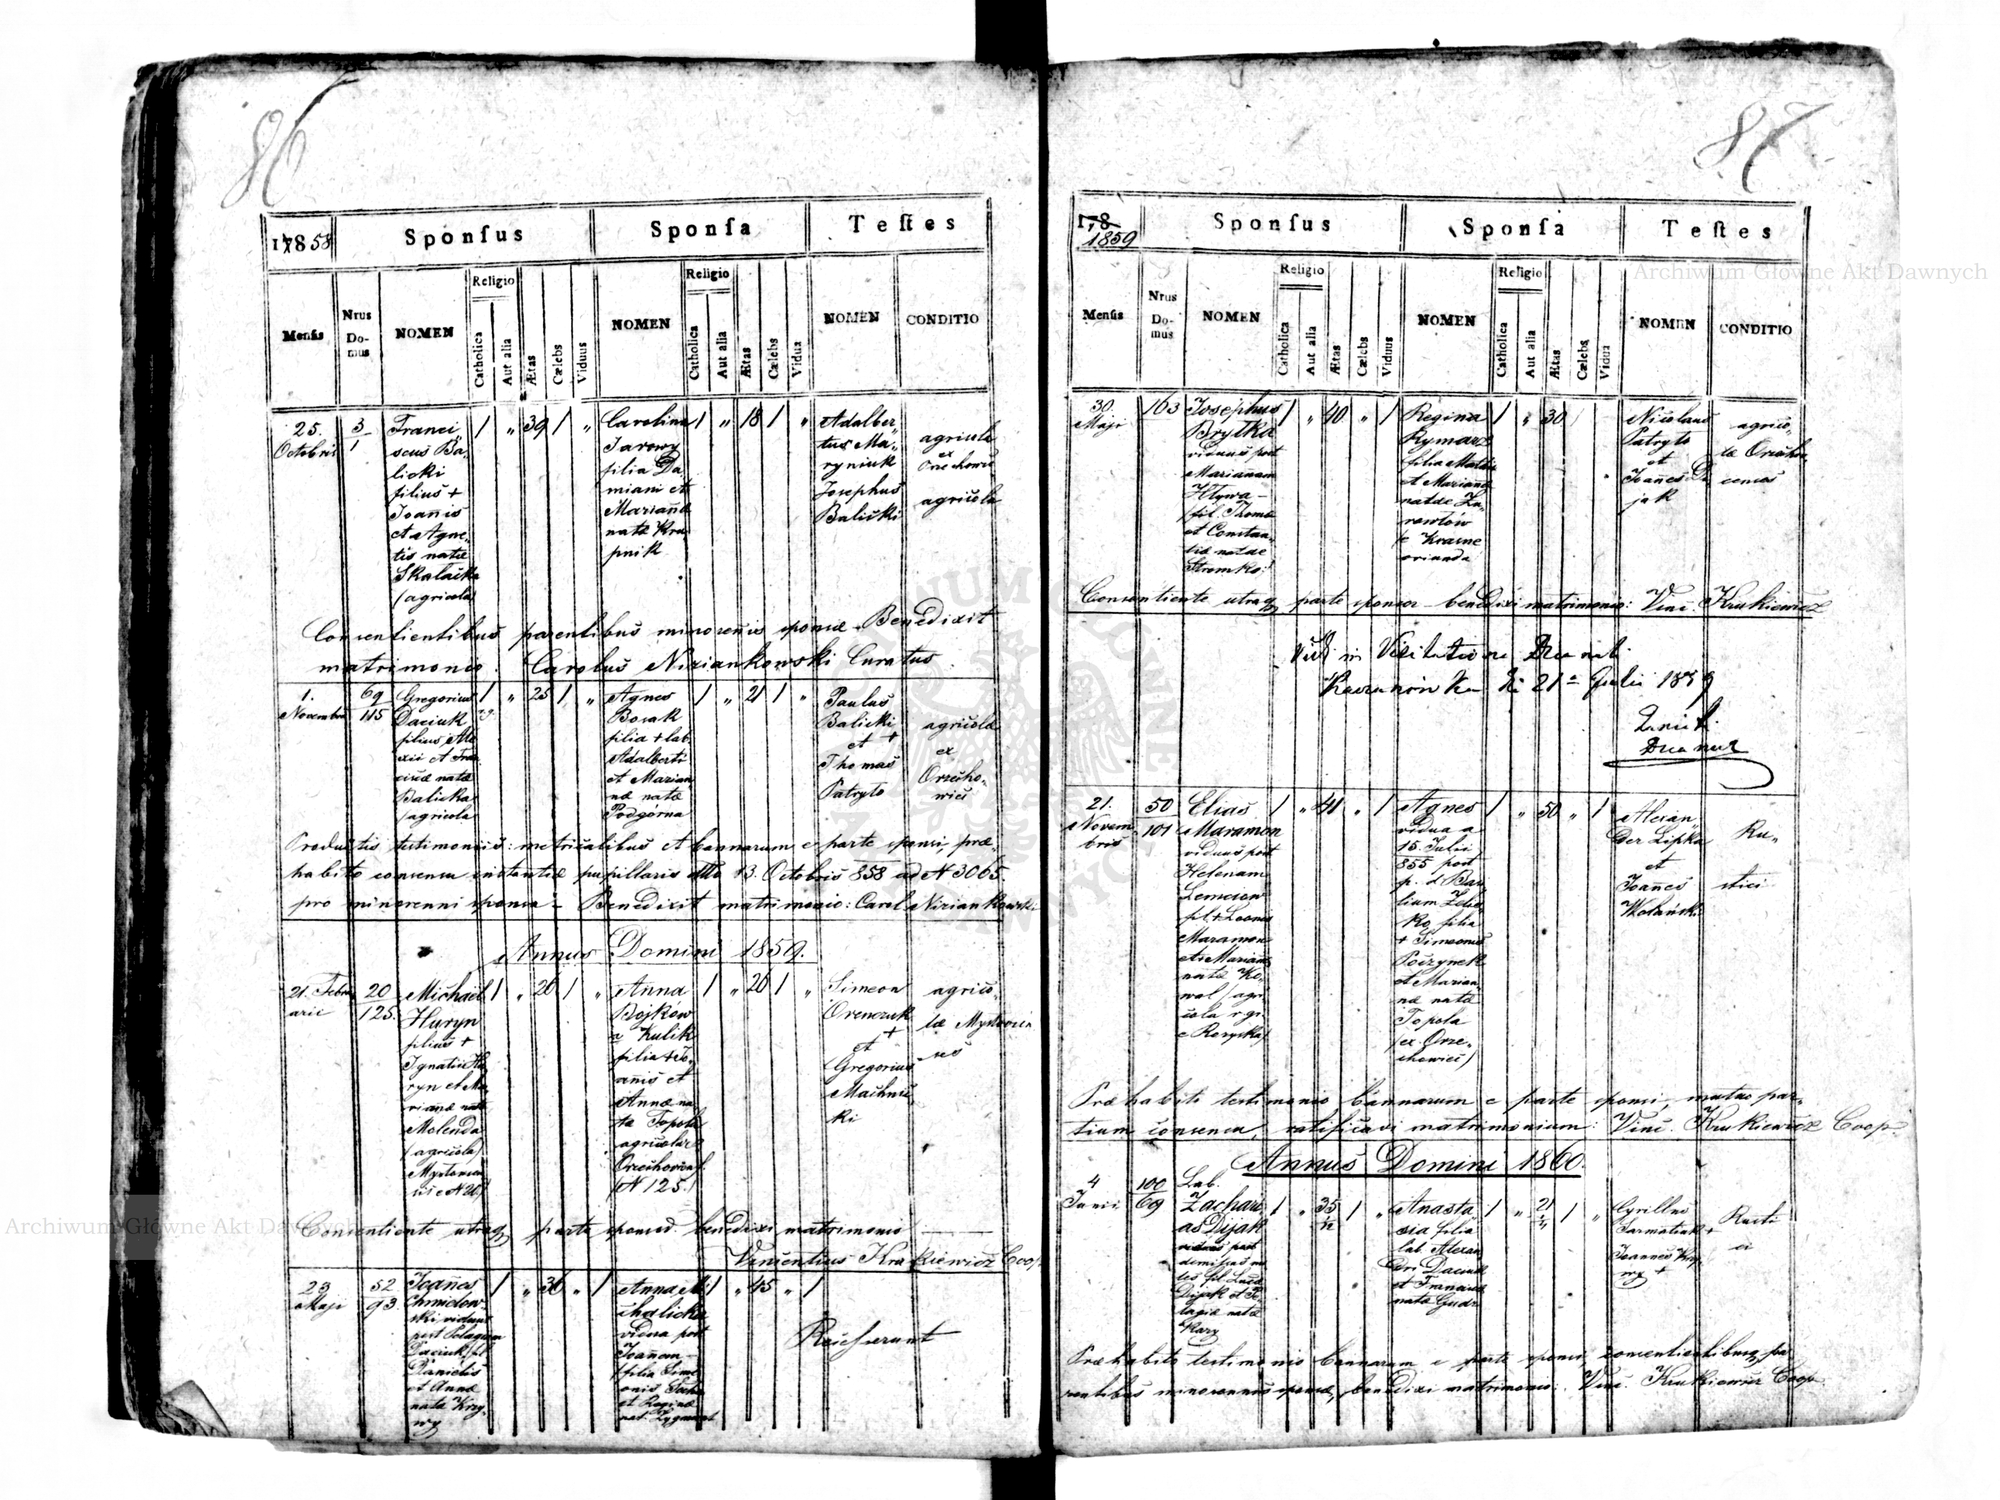 86
1858
Sponsus
Sponsa
Testes
Mensis
Nrus Do-mus
NOMEN
Religio
Catholica
Aut alia
Ætas
Cælebs
Viduus
NOMEN
Religio
Catholica
Aut alia
Ætas
Cælebs
Vidua
NOMEN
CONDITIO
25.
Octobris
3
1
Franci
scus Ba-
licki
filius +
Joannis
et Agne-
tis natæ
Skalacka
(agricola)
39
Carolina
Jarowy
filia Da
miani et
Mariannæ
natæ Kru
pnik
18
Adalber-
tus Ma-
ryniuk
Josephus
Balicki
agricola
ex
agricola
Consentientibus parentibus minorenis sponsæ. Benedixit
matrimonio. Carolus Niziankowski Curatus
1.
Novembris
69
115
Gregorius
Daciuk
filius Ale
xii et Fran
ciscæ natæ
Balicka
(agricola
25
Agnes
Bosak
filia + lab.
Adalberti
et Marian
næ natæ
Podgorna
21
Paulus
Balicki
et +
Thomas
Patryto
agricolæ
ex
Orzecho-
wice
Productis testimoniis: metricalibus et bannorum e parte sponsi, præ-
habito consensu instantiæ pupillaris ddto 13. Octobris 858 ad N 3065.
pro minorenni sponsa - Benedixit matrimonio: Carol Niziankowski
Annus Domini 1859.
21. Febru
arii
20
125.
Michael
Huryn
filius +
Ignatii Hu
ryn et Ma
riannæ natæ
Molenda
(agricola)
26
Anna
Bojkow
v Kulik
filia + Jo-
annis et
Annæ na
tæ Topola
agricolar
(N 125.)
26
Simeon
+
et
Gregorius
Machnic
ki
agrico-
læ
Consentiente utraq parte sponsor. benedixi matrimonio
Vincentius Krukiewicz Coop.
23
Maji
52
93
Joannes
Chmielow-
ski viduus
post Pelagiam
Daciuk (fil
Danielis
et Annæ
natæ Krzy-
wy
36
Anna Mi
chalicka
vidua post
Joannem
(filia Sime
onis
et Reginæ
45
Reicserunt
87
178
1859
Sponsus
Sponsa
Testes
Mensis
Nrus Do-mus
NOMEN
Religio
Catholica
Aut alia
Ætas
Cælebs
Viduus
NOMEN
Religio
Catholica
Aut alia
Ætas
Cælebs
Vidua
NOMEN
CONDITIO
30.
Maji
163
Josephus
Brytka
viduus post
Mariannam
Hlywa -
(fil. Thomæ
et Constan-
tiæ natae
Stromko.)
40
Regina
Rymarz
filia Mathiæ
et Mariannæ
natae Za-
(e Krasne
oriunda
30
Nicolaus
Patryto
et
Joannes Di
jak
agrico-
læ Orzecho-
Consentiente utraq parte sponsor benedixi matrimonio: Vinc. Krukiewicz
21a Julii 1859
21.
Novem
bris
50
101
Elias
Maramon
viduus post
Helenam
fil +
Maramon
et Mariannæ
natæ Ko-
wal (agri
cola r.gr.
41
Agnes
vidua a
15. Julii
855 post
p. d. Ba
silium
ko filia
+ Simeonis
et Marian-
næ natæ
Topola
(ex Orze-
chowice)
50
Alexan
der Lipka
et
Joannes
Ru-
stici
Præhabito testimonio bannorum e parte sponsi, mutuo par-
tium consensu, ratificavi matrimonium: Vinc. Krukiewicz Coop.
Annus Domini 1860.
4
Junii
100
69
Lab.
Zachari-
as Dijak
Dijak et Pe
lagiæ natæ
Kary
35
Anasta
sia filia
lab. Alexan
dri Daciuk
et Franciscæ
natæ
21
Cyrillus
+
Joannes
Rusti
ci
Præhabito testimonio bannorum e parte sponsi, consentientibusq pa
rentibus minorennis sponsæ, benedixi matrimonio: Vinc. Krukiewicz Coop.
Archiwum Główne Akt Dawnych
Archiwum Główne Akt Dawnych